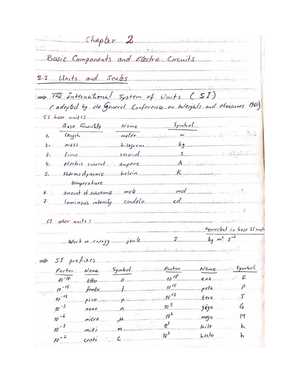 Chapter 2
Basic Components and Electric Circuits
2.1 Units and Scales
The International System of Units (SI)
adopted by the General Conference on Weights and Measures
SI base units
Base Quantity Name Symbol
length meter m
2. mass kilogram kg
3. time second s
4. Electric current ampere A
5. thermodynamic kelvin K
temperature
6. amount of substance mole mol
7. luminous intensity candela cd
SI other units:
expressed in base SI units
Work or energy joule J kg m² s⁻²
SI prefixes
Factor Name Symbol Factor Name Symbol
10⁻¹⁸ atto a 10¹⁸ exa E
10⁻¹⁵ femto f 10¹⁵ peta P
10⁻¹² pico p 10¹² tera T
10⁻⁹ nano n 10⁹ giga G
10⁻⁶ micro μ 10⁶ mega M
10⁻³ milli m 10³ kilo k
10⁻² centi c 10² hecto h